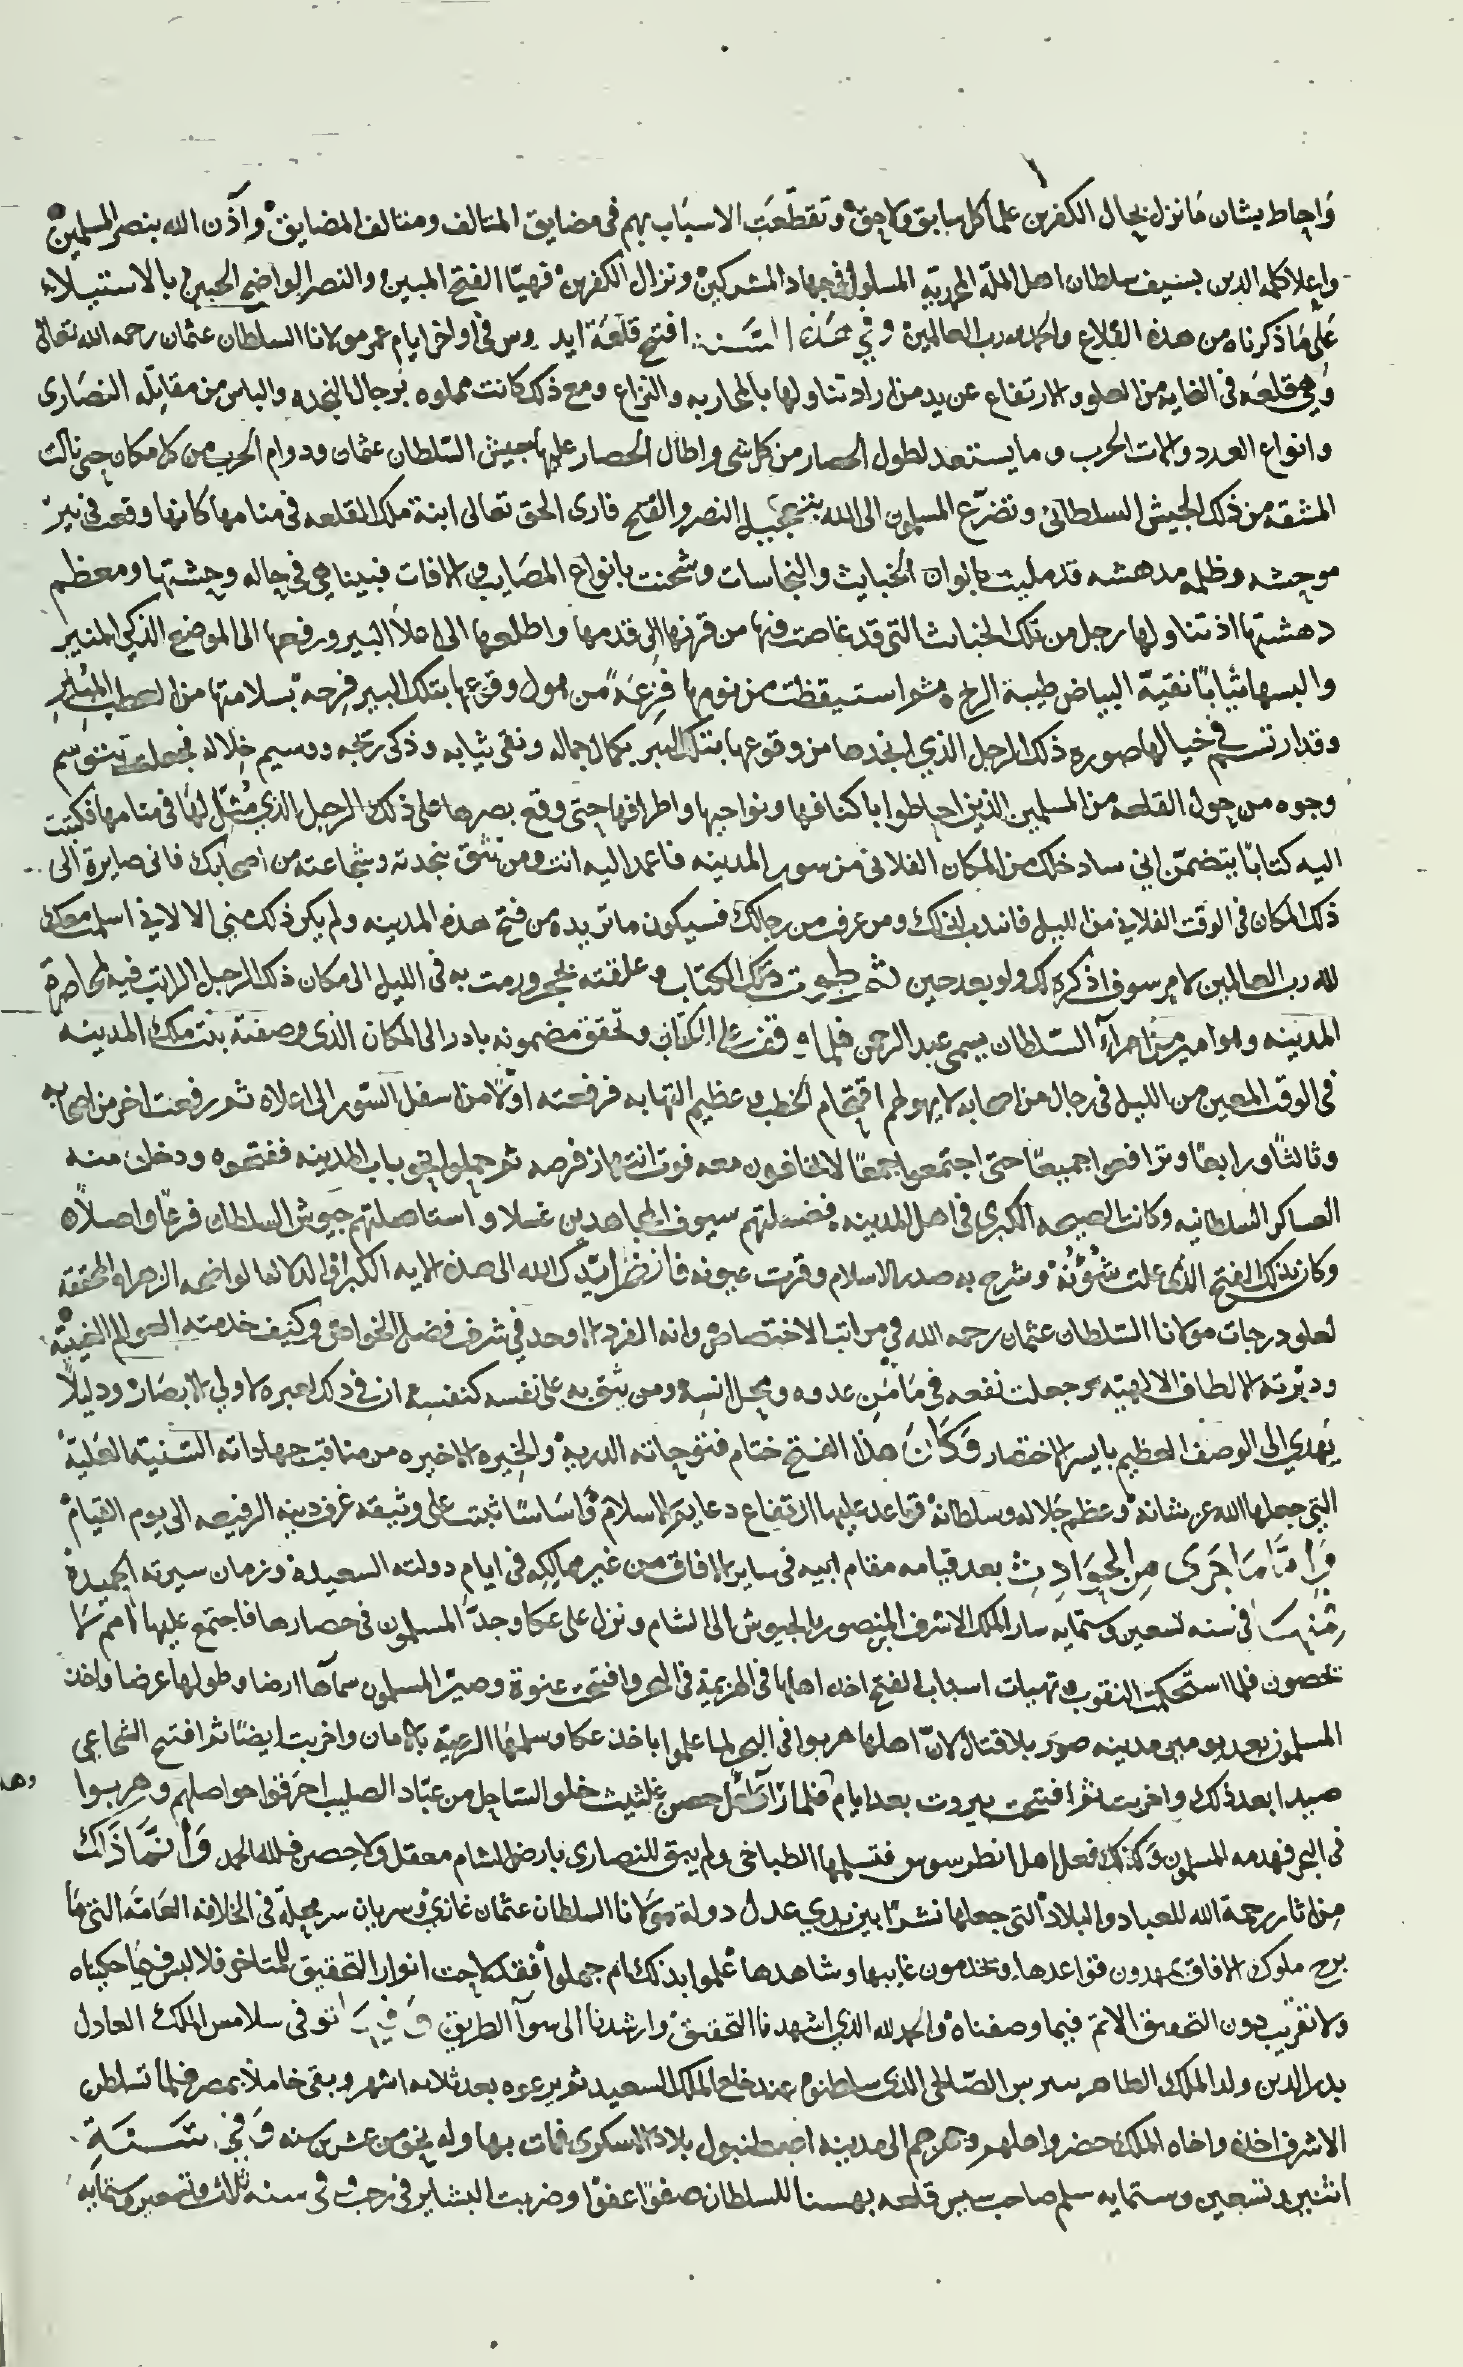 وَاحاط بشان مَا نزل بحال الكفرين علما كل سابق ولاحق وتقطّعت الاسبَاب بهم فى مضايق المتالف ومتالف المضايق وآذن الله بنصر المسلمين
واعلا كلمة الدين بسيف سلطان اهل الملّة المحمديّة المسلول فى جهاد المشركين ونزال الكفرين فهيّا الفتح المبين والنصر الواضح الجبين بالاستيلاء
على مَا ذكرناه من هذه القلاع والحمد لله رب العالمين وفي هذه السَّنة افتتح قلعَة ايدوس فى اواخر ايام عمر مولانا السلطان عثمان رحمه الله تعالى
وهي قلعَة فى الغايه من العلو والارتفاع عن يد من اراد تناولها بالمحاربه والنزاع ومع ذلك كانت مملوه برجال النجده والباس من مقاتلة النصَارى
وانواع العدد والات الحرب وما يستعد لطول الحصار من كل شى واطال الحصار عليها جيش السّلطان عثمان ودوام الحرب من كل مكان حتى نالت
المشقه من ذلك الجيش السلطانى وتضرّع المسلمون الى الله بتعجيل النصر والفتح فارى الحق تعالى ابنة ملك القلعه فى منامها كانها وقعت فى بير
موحشه وظلمه مدهشه قد مليت بالوان الخبايث والنجاسات وشحنت بانواع المصَايب والافات فبينا هي فى حاله وحشتها ومعظم
دهشتها اذ تناولها رجل من تلك الخبائث التى قد غاصت فيها من قرنها الى قدمها واطلعها الى اعلا البير ورفعها الى الموضع الذكي المنير
والبسها ثيابًا نقيّة البياض طيبة الريح ثم استيقظت من نومها فزعَة من هول وقوعها بتلك البير فرحه بسلامتها من العطب المبير
وقد ارتسم في خيالها صورة ذلك الرجل الذي انجدها من وقوعها بتلك البير بكمال جماله ونقى ثيابه وذكى ريحه ووسيم خلاله فجعلت تتوسم
وجوه من حول القلعه من المسلمين الذين احاطوا باكنافها ونواحيها واطرافها حتى وقع بصرها على ذلك الرجل الذي مُثّل لها فى منامها فكتبت
اليه كتابًا يتضمّن اني سادخلك من المكان الفلانى من سور المدينه فاعمد اليه انت ومن تثق بنجدته وشجاعته من اصحابك فانى صايرة الى
ذلك المكان فى الوقت الفلاني من الليل فانتدب لذلك ومن عرفت من رجالك فسيكون ما تريده من فتح هذه المدينه ولم يكن ذلك مني الا لاني اسلمت معك
لله رب العالمين لامر سوف اذكره لك ولو بعد حين ثم طوت ذلك الكتاب وعلقته بحجر ورمت به فى الليل الى مكان ذلك الرجل الراتب فيه لمحاصرة
المدينه وهو امير من امرآء السّلطان يسمى عبد الرحمن فلما وقف على الكتاب وتحقق مضمونه بادر الى المكان الذى وصفته بنت ملك المدينه
فى الوقت المعين من الليل فى رجال من اصحابه لا يهولهم اقتحام الخطب وعظيم التهابه فرفعته اولًا من اسفل السّور الى اعلاه ثم رفعت اخر من اصحابه
وثالثًا ورابعًا وترافعوا جميعًا حتى اجتمعوا جمعًا لا يخافون معه فوت انتهاز فرصه ثم حملوا نحو باب المدينه ففتحوه ودخلت منه
العساكر السلطانيه وكانت الصيحه الكبرى فى اهل المدينه فغسلتهم سيوف المجاهدين غسلا واستاصلتهم جيوش السلطان فرعًا واصلًا
وكان ذلك الفتح الذى علت شُؤُنُه وشرح به صدر الاسلام وقرت عيونه فانظر ايّدك الله الى هذه الايه الكبرى والدلالة الواضحه الزهرا والمحققه
لعلو درجات مولانا السّلطان عثمان رحمه الله فى مراتب الاختصاص وانه الفرد الاوحد فى شرف فضل الخواص وكيف خدمته العوالم الغيبيّة
ودبّرته الالطاف الالهيّه وجعلت نفعه فى مَأمَن عدوه ومحل انسه ومن يثق به على نفسه كنفسه ان فى ذلك لعبره لاولي الابصَار ودليلًا
يَهدي الى الوصف العظيم بايسر الاختصار وَكَانَ هذا الفتح ختام فتوحاته الدريه والخيره الاخيره من مناقب جهاداته السّنيّة العَليّة
التي جعلها الله عز شانه وعظم جَلاله وسلطانه قواعد عليها ارتفاع دعايم الاسلام وَاسَاسًا ثبت على وثيقه غرف دينه الرفيعه الى يوم القيام
وَامَّا مَا جَرَى مِنَ الحَوَادِثِ بعد قيامه مقام ابيه فى ساير الافاق من غير ممالكه فى ايام دولته السعيده وزمان سيرته الحميدة
فمنهَا فى سنه تسعين وستمايه سار الملك الاشرف المنصور بالجيوش الى الشام ونزل على عكا وجدّ المسلمون فى حصارها فاجتمع عليها امم لا
تحصون فلما استحكمت النقوب وتهيات اسباب الفتح اخذ اهلها فى الهزيمة فى البحر وافتتحت عنوة وصيّر المسلمون سمآها ارضا وطولها عرضا واخذ
المسلمون بعد يومين مدينه صور بلا قتال لانّ اهلها هربوا فى البحر لما علموا باخذ عكا وسلمها الرعيّه بالامان واخربت ايضًا ثم افتتح الشجاعي
صيدا بعد ذلك واخربت ثم افتتحت بيروت بعد ايام فلما رآى اهل حصن عثليث خلو السّاحل من عبّاد الصليب احرقوا حواصلهم وهربوا
فى البحر فهدمه المسلمون وكذلك فعل اهل انطرسوس فتسلمها الطباخى ولم يبق للنصارى بارض الشام معقل ولا حصن فلله الحمد وَانَّمَا ذَاكَ
من اثار رحمة الله للعباد والبلاد التى جعلها نشرًا بين يدي عدل دولة مولانا السلطان عثمان غازي وسريان سر محله فى الخلافه العامّة التى مَا
برح ملوك الافاق يمهدون قواعدها ويخدمون غايبها وشاهدها علموا بذلك ام جهلوا فقد لاحت انوار التحقيق للمتاخر فلا لبس فيما حكيناه
ولا تقريب دون التحقيق الاتم فيما وصفناه والحمد لله الذي اشهدنا التحقيق وارشدنا الى سوآ الطريق وَفِيهَا توفى سلامس الملك العادل
بدر الدين ولد الملك الظاهر بيبرس الصّالحى الذى سلطنوه عند خلع الملك السعيد ثم نزعوه بعد ثلاثه اشهر وبقى خاملًا بمصر فلما تسلطن
الاشرف اخذه واخاه الملك خضر واهلهم وجهزهم الى مدينه اصطنبول بلاد الاسكرى فمات بها وله نحو من عشرين سنه وَفى سَنَةِ
اثنين وتسعين وستمايه سلم صاحب سيس قلعه بهسنا للسلطان صفوًا عفوًا وضربت البشاير فى رجب وفى سنه ثلاث وتسعين وستمايه
وهد